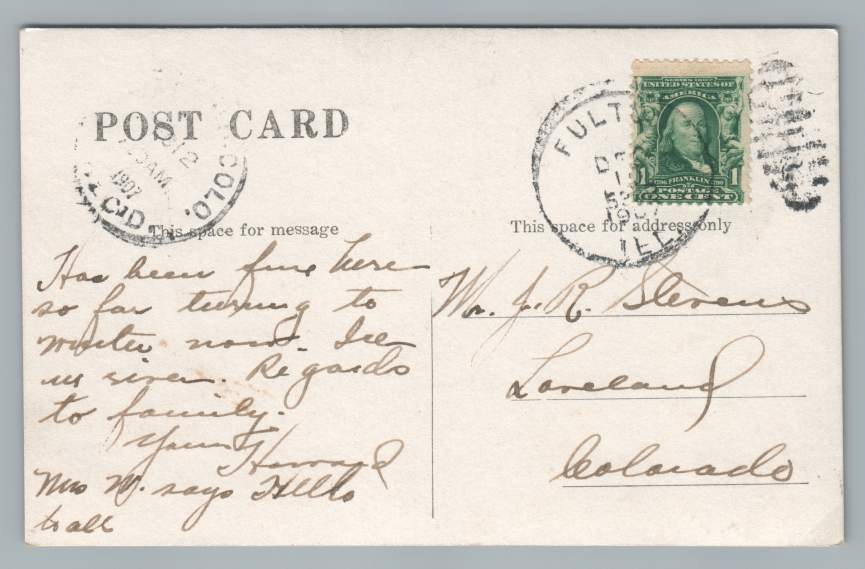 POST CARD
COLO.
12
AM
1907
REC'D.
This space for message
Has been fine here
so far turning to
winter now. Ice
in river. Regards
to family.
Yours Howard
Mrs W. says Hello
to all
FULTON
DEC
1907
ILL.
SERIES 1902
UNITED STATES OF
AMERICA
1 1
FRANKLIN
POSTAGE
ONE CENT
This space for address only
Mr. J. R. Stevens
Loveland
Colorado